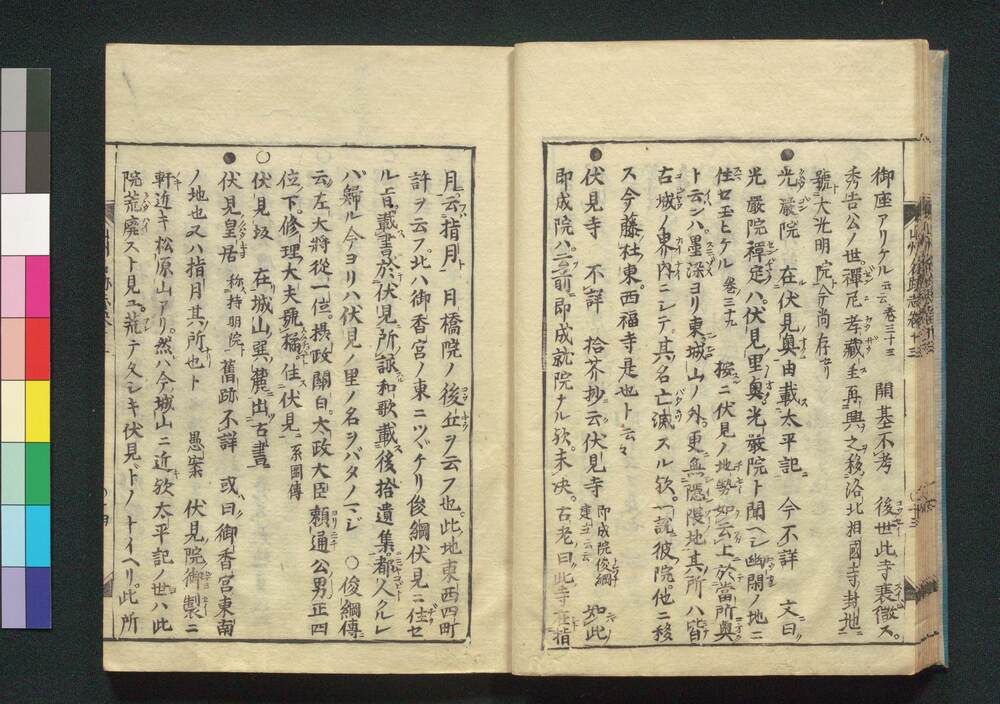 御座アリケル云云 巻三十三 開基不考 後世此寺衰微ス。
秀吉公ノ世禪尼孝藏主再興之移洛北相國寺封地ニ
號大光明院今尚存セリ
光嚴院 在伏見奥由載太平記 今不詳 文曰
光嚴院禪定ハ伏見里奥光嚴院ト聞ヘシ幽閑ノ地ニ
住セ玉ヒケル 巻三十九 按ニ伏見ノ地勢如云上於當所奥
ト云ンハ墨深ヨリ東城山ノ外更無隠隈地其所ハ皆
古城ノ界内ニシテ其名亡滅スル欤。一説彼院他ニ移
ス今藤杜東西福寺是也ト云々
伏見寺 不詳 拾芥抄云伏見寺 即成院俊綱建立云云 如此
即成院ハ云前即成就院ナル欤未决。古老曰此寺在指
月云指月ト 月橋院ノ後丘ヲ云フ也此地東西四町
許ヲ云フ北ハ御香宮ノ東ニツヾケリ俊綱伏見ニ住セ
ル㫖載書於伏見所詠和歌載後拾遺集都人クルレ
バ歸ル今ヨリハ伏見ノ里ノ名ヲバタノマジ ○俊綱傳
云左大將從一位攝政關白大政大臣頼通公男正四
位下修理大夫號橘住伏見 系圖傳
伏見坂 在城山巽麓出古書
伏見皇居 称持明院 舊跡不詳 或曰御香宮東南
ノ地也又ハ指月其所也ト 愚案 伏見院御製ニ
軒近キ松原山アリ。然ハ今城山ニ近欤太平記ノ世ハ此
院荒廢スト見ユ。荒テ久シキ伏見ドノトイヘリ。此所